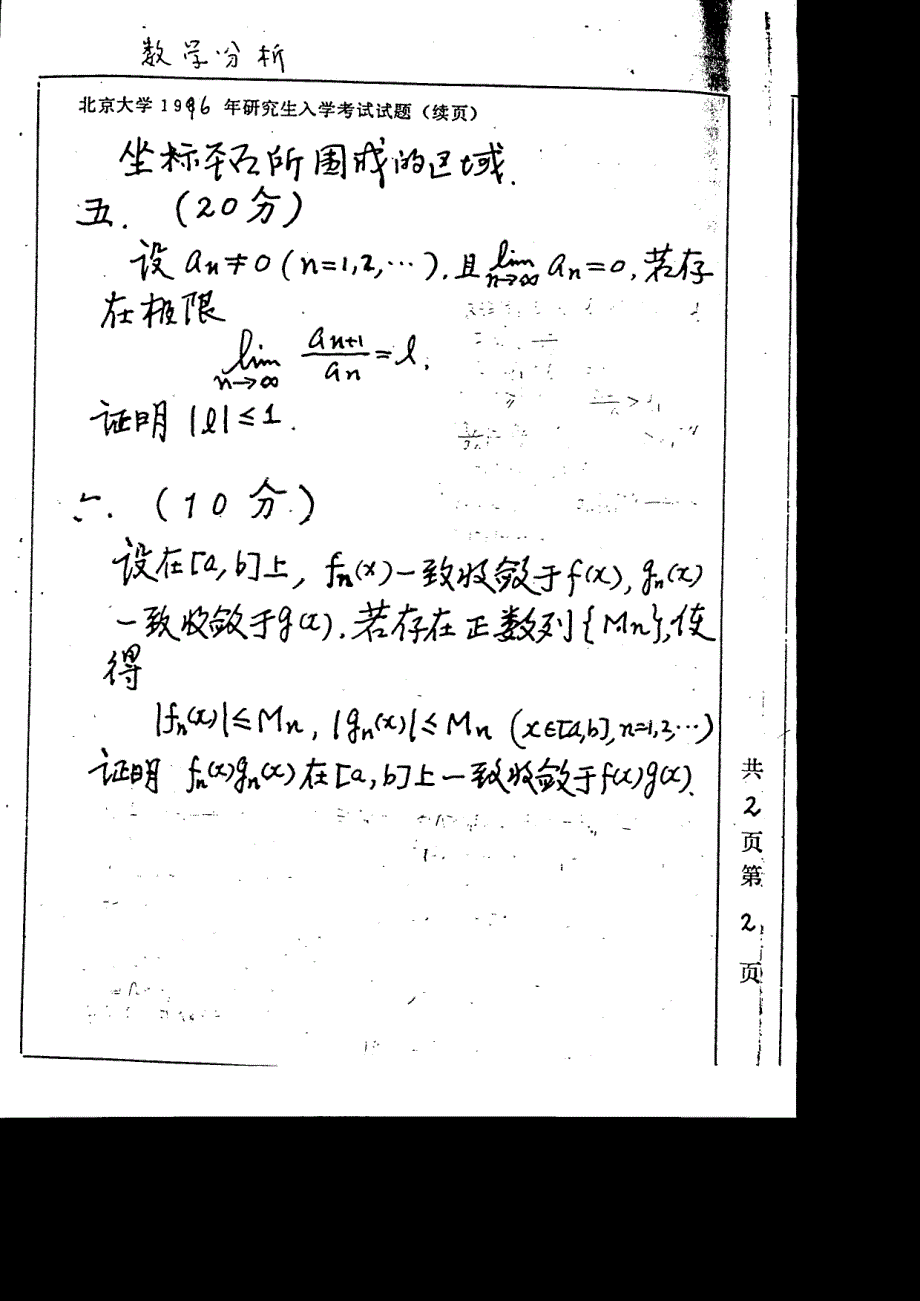 数学分析
北京大学 1996 年研究生入学考试试题（续页）
坐标平面所围成的区域.
五. (20分)
设 aₙ≠0 (n=1,2,⋯), 且 lim n→∞ aₙ=0, 若存
在极限
lim n→∞ aₙ₊₁/aₙ = l,
证明 |l|≤1.
六. (10分)
设在[a,b]上, fₙ(x)一致收敛于f(x), gₙ(x)
一致收敛于g(x). 若存在正数列{Mn}, 使
得
|fₙ(x)|≤Mn, |gₙ(x)|≤Mn (x∈[a,b], n=1,2,⋯)
证明 fₙ(x)gₙ(x)在[a,b]上一致收敛于f(x)g(x).
共
2
页
第
2
页